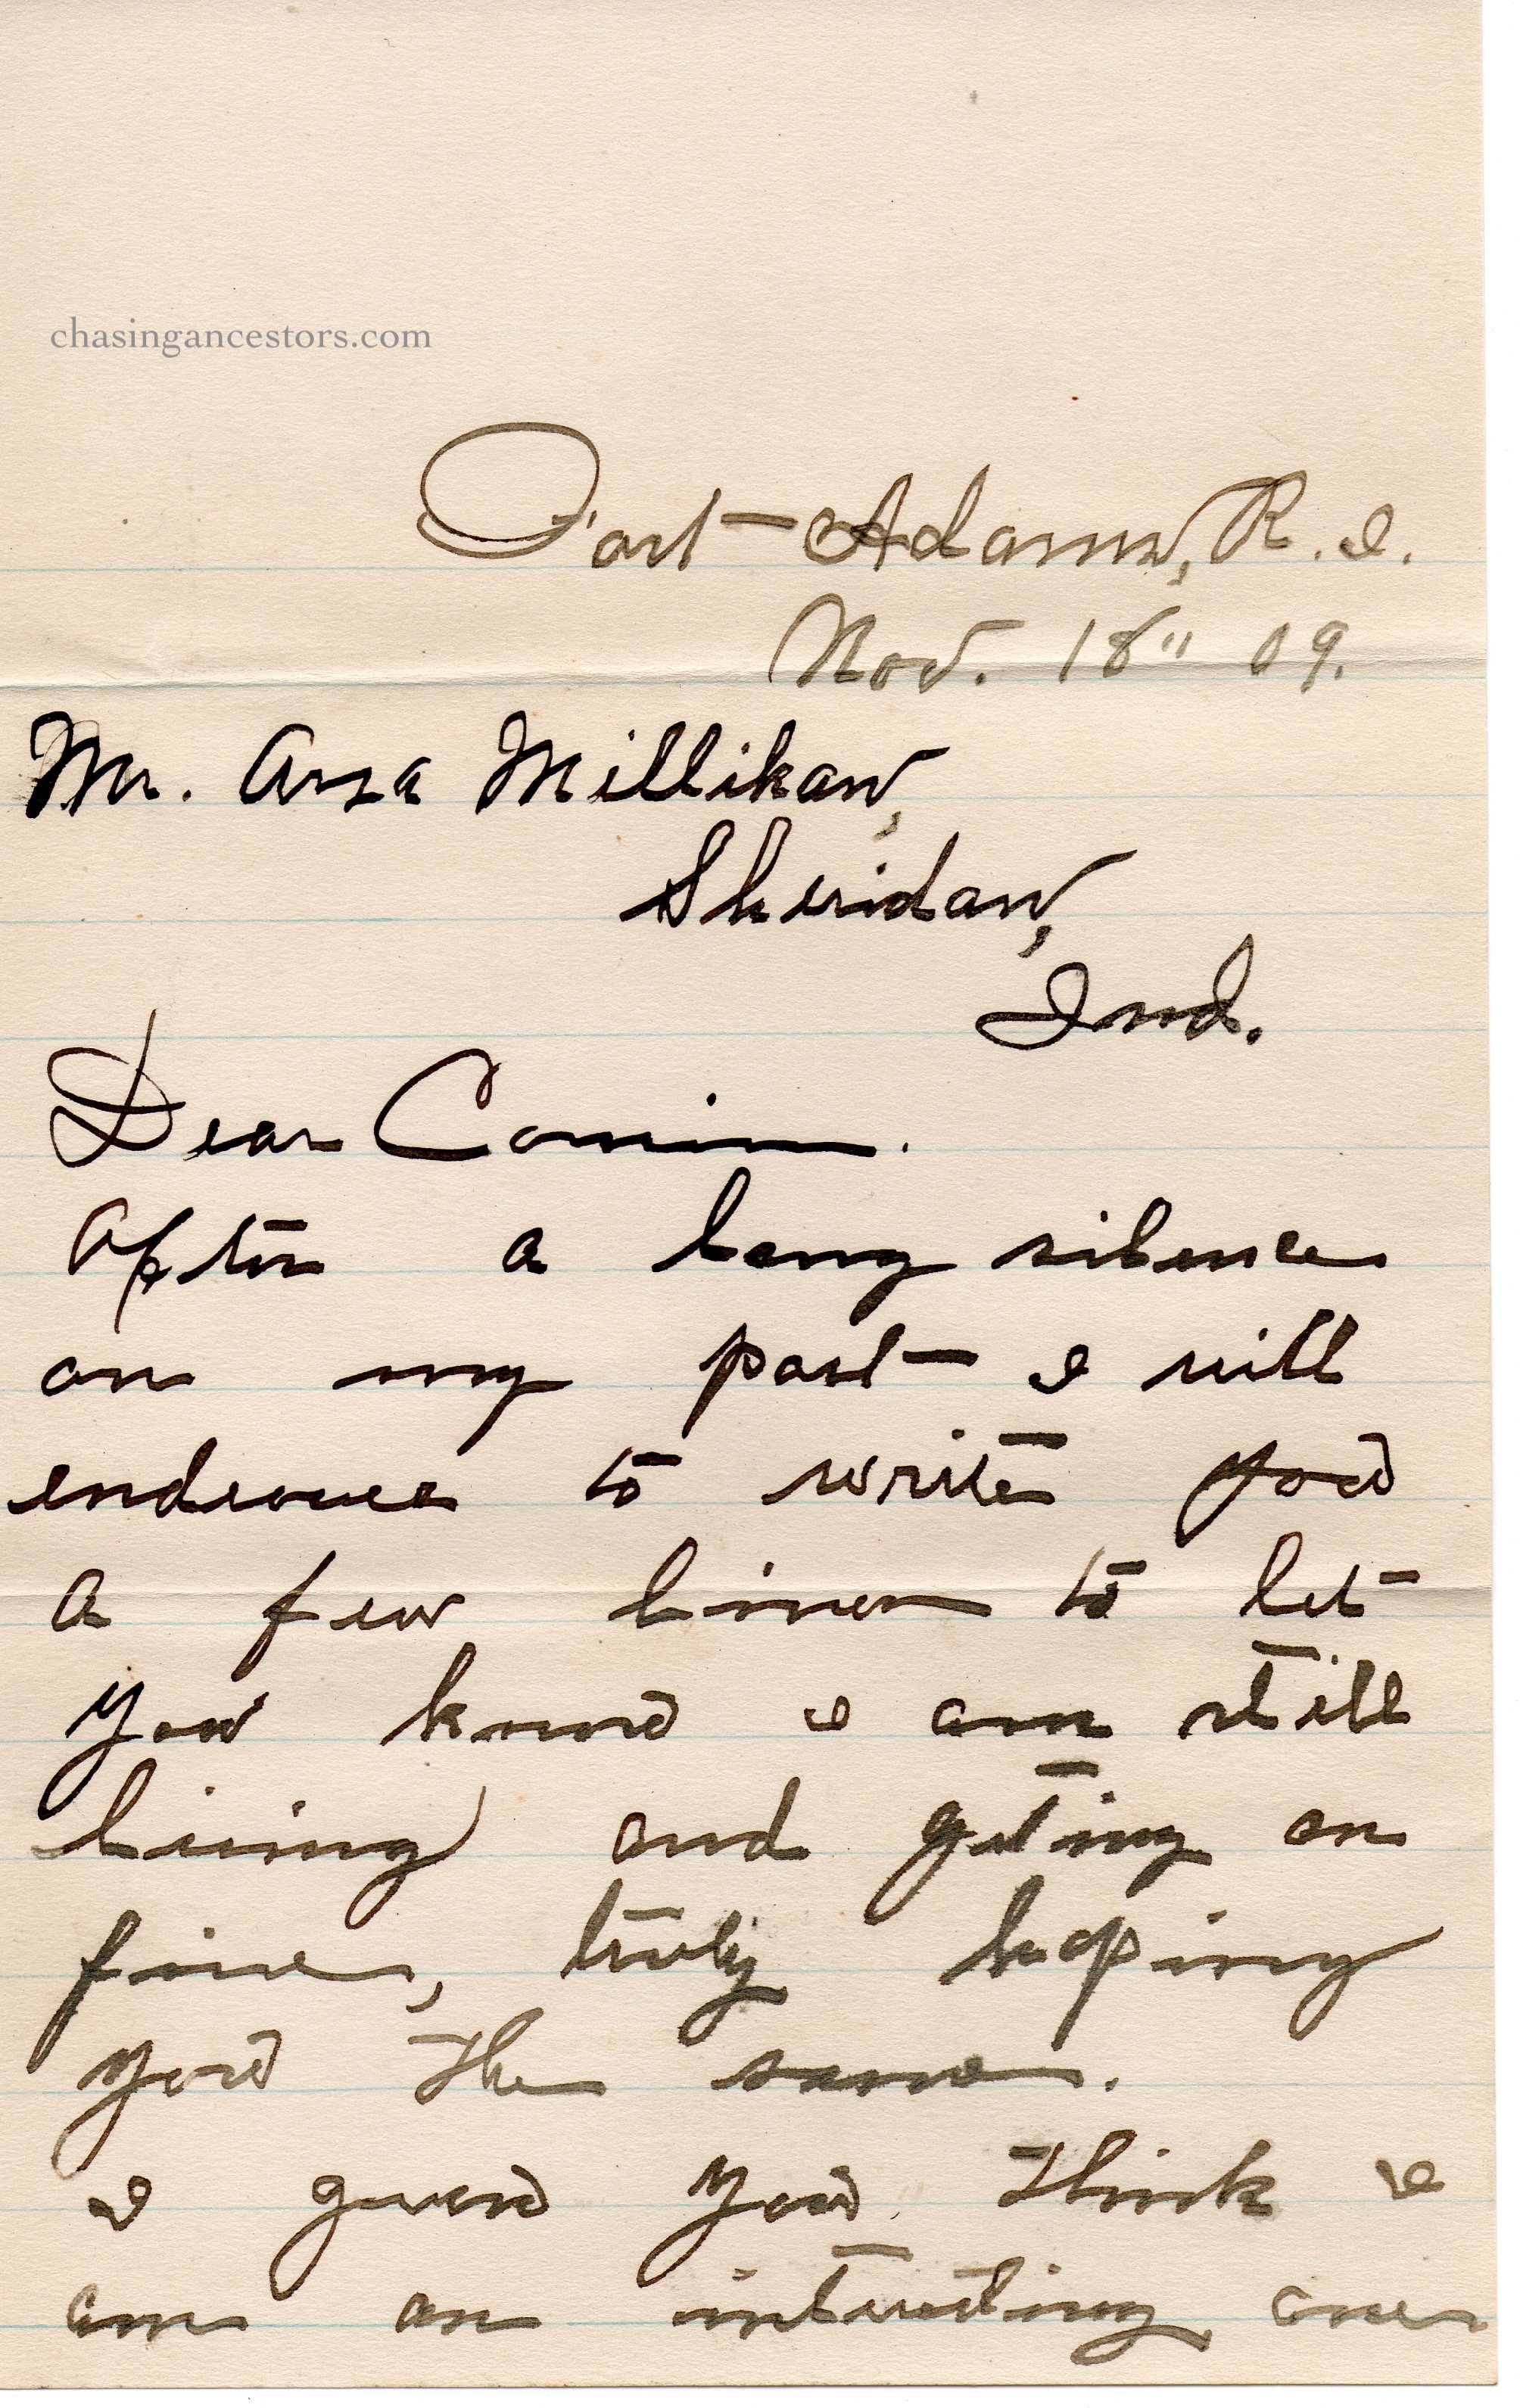 chasingancestors.com
Fort Adams, R. I.
Nov. 18" 09.
Mr. Arza Millikan,
Sheridan,
Ind.
Dear Cousin.
After a long silence
on my part I will
to write you
a few lines to let
you know I am still
living and geting on
fine, truly hoping
you the same.
I guess you think I
am an interesting one